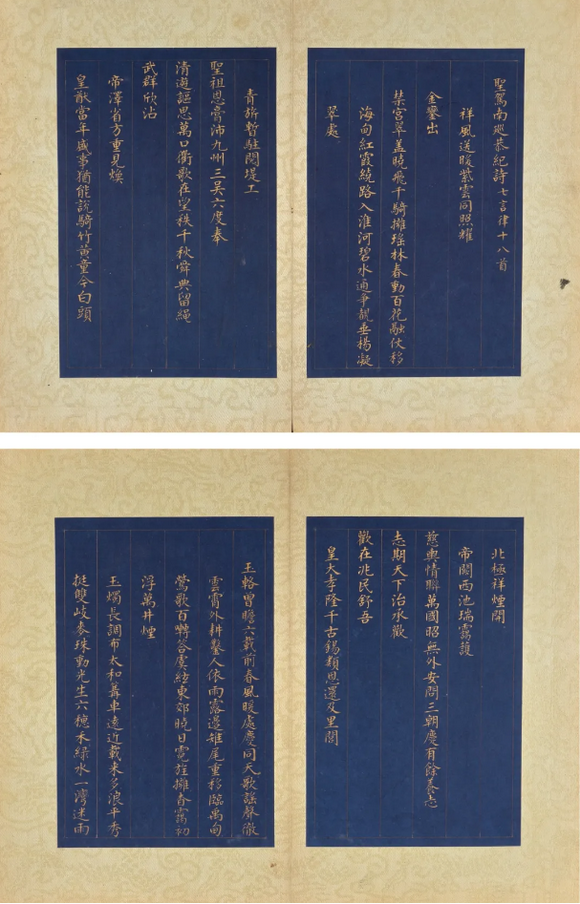 聖駕南巡恭紀詩七言律十八首
祥風送暖紫雲同照耀
金鑾出
禁宮翠蓋曉飛千騎擁瑤林春動百花融仗移
海甸紅霞繞路入淮河碧水通爭靚垂楊凝
翠處
青旂暫駐閱堤工
聖祖恩膏沛九州三吳六度奉
清遊謳思萬口衢歌在望秩千秋舜典留繩
武群欣沾
帝澤省方重見煥
皇猷當年盛事猶能說騎竹黃童今白頭
北極祥煙開
帝闕西池瑞靄護
慈輿情聯萬國昭無外安問三朝慶有餘養志
志期天下治承歡
歡在兆民舒吾
皇大孝隆千古錫類恩還及里閭
玉輅曾瞻六載前春風暖處慶同天歌謠聲徹
雲霄外耕鑿人依雨露邊雉尾重移臨禹甸
鶯歌百轉答虞絃東郊曉日霓旌擁香靄初
浮萬井煙
玉燭長調布太和篝車遠近載來多浪平秀
挺雙岐麥珠動光生六穗禾綠水一灣迷雨